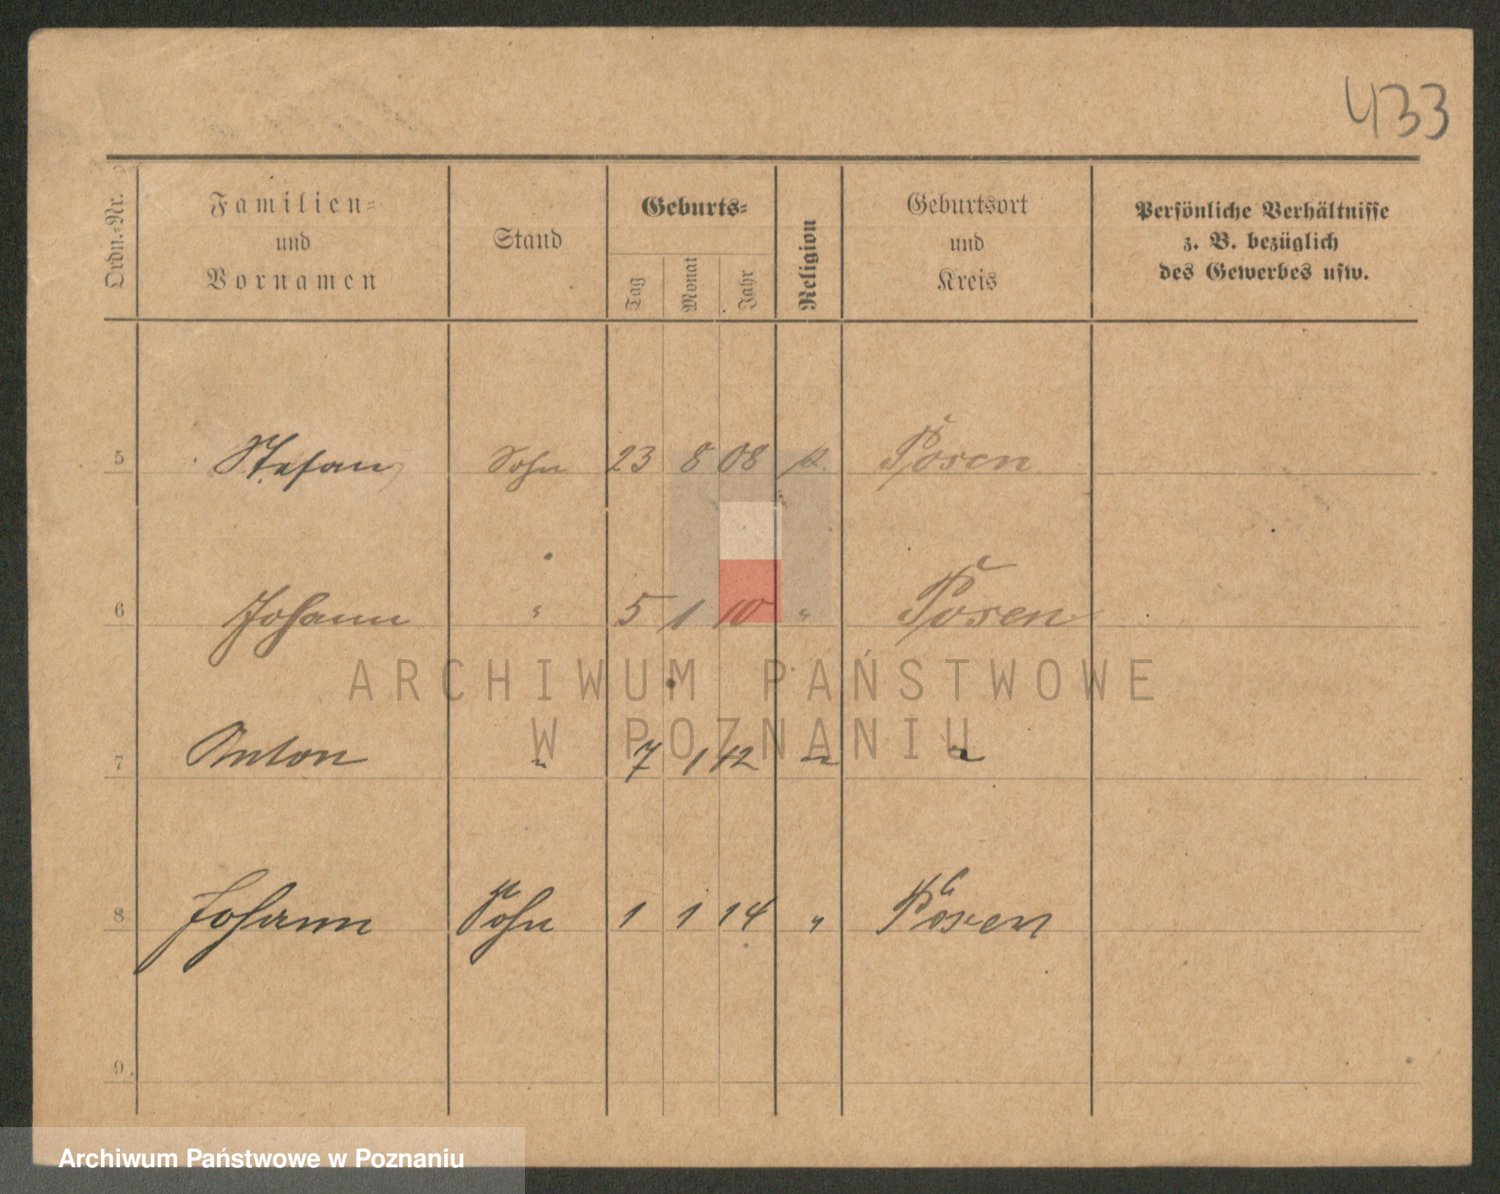 433
Ordn.-Nr.
Familien-
und
Vornamen
Stand
Geburts-
Tag
Monat
Jahr
Religion
Geburtsort
und
Kreis
Persönliche Verhältnisse
z. B. bezüglich
des Gewerbes usw.
5 Stefan Sohn 23 8 08 k. Posen
6 Johann " 5 1 10 " Posen
7 Anton " 7 1 12 " "
8 Johann Sohn 1 1 14 " Posen
9
ARCHIWUM PAŃSTWOWE
W POZNANIU
Archiwum Państwowe w Poznaniu